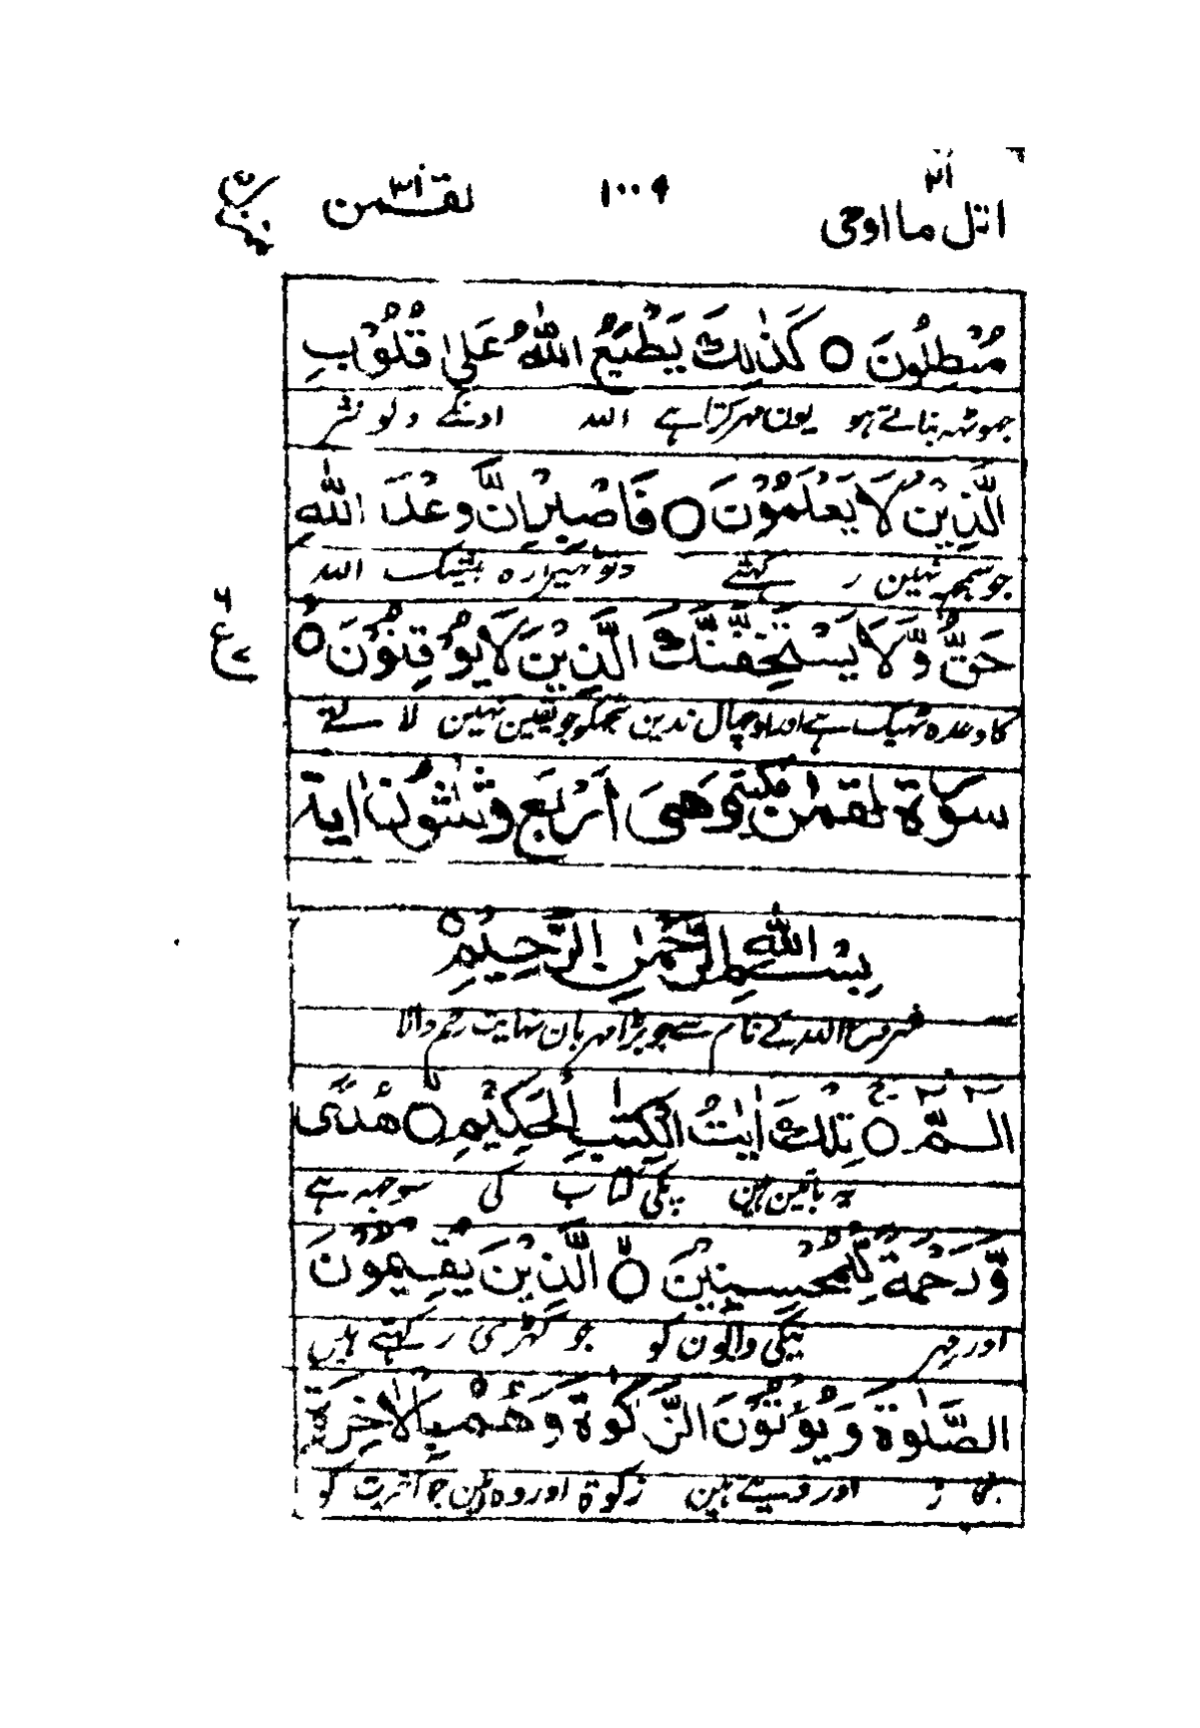 اتل ما اوحی ۲۱ ۱۰۰۹ لقمٰن ۳۱
مُبْطِلُوْنَ ○ كَذٰلِكَ يَطْبَعُ اللّٰهُ عَلٰى قُلُوْبِ
جھوٹھہ بناتے ہو یون مہر کرتا ہے اللہ اونکے دلونپر
الَّذِيْنَ لَا يَعْلَمُوْنَ ○ فَاصْبِرْ اِنَّ وَعْدَ اللّٰهِ
جو سمجھہ نہین رکہتے تو ٹہیرا رہ بیشک اللہ
حَقٌّ وَّلَا يَسْتَخِفَّنَّكَ الَّذِيْنَ لَا يُوْقِنُوْنَ ○
۶ ع
کا وعدہ ٹہیک ہے اور اوچہال ندین تجہکو جو یقین نہین لاتے
سورة لقمٰن مكية وَهِىَ اَرْبَع وثلٰثُوْنَ اٰية
بِسْمِ اللّٰهِ الرَّحْمٰنِ الرَّحِيْمِ ○
شروع اللہ کے نام سے جو بڑا مہربان نہایت رحم والا
الٓمّٓ ○ تِلْكَ اٰيٰتُ الْكِتٰبِ الْحَكِيْمِ ○ هُدًى
یہ باتین ہین پکی کتاب کی سوجہہ ہے
وَّرَحْمَةً لِّلْمُحْسِنِيْنَ ○ الَّذِيْنَ يُقِيْمُوْنَ
اور مہر نیکی والون کو جو کہڑی رکہتے ہیں
الصَّلٰوةَ وَيُؤْتُوْنَ الزَّكٰوةَ وَهُمْ بِالْاٰخِرَةِ
نماز اور دیتے ہین زکوٰة اور وہ ہین جو آخرت کو